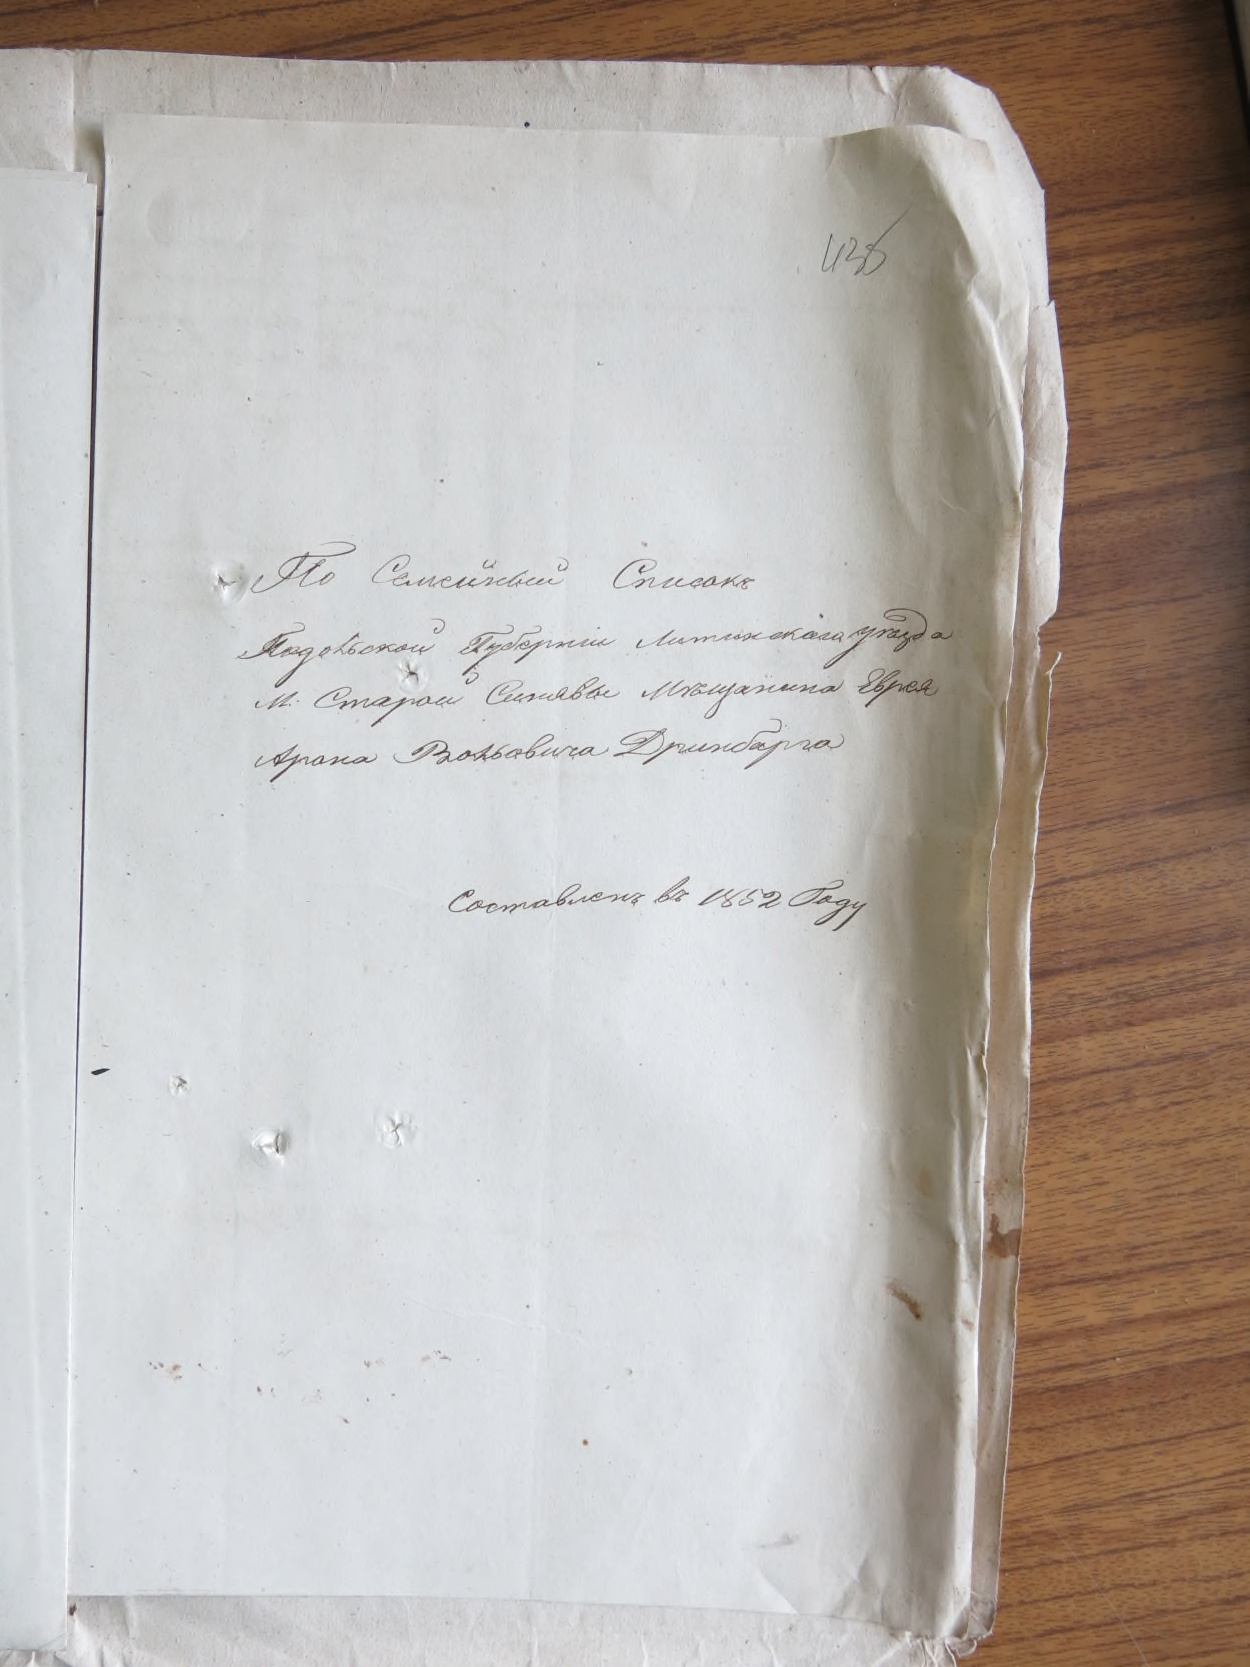 436
По Семейный Списокъ
Подольской Губерніи Литинскаго уѣзда
М. Старой Синявы Мѣщанина Еврея
Арона Вольовича Дринбарга
Составленъ въ 1852 Году